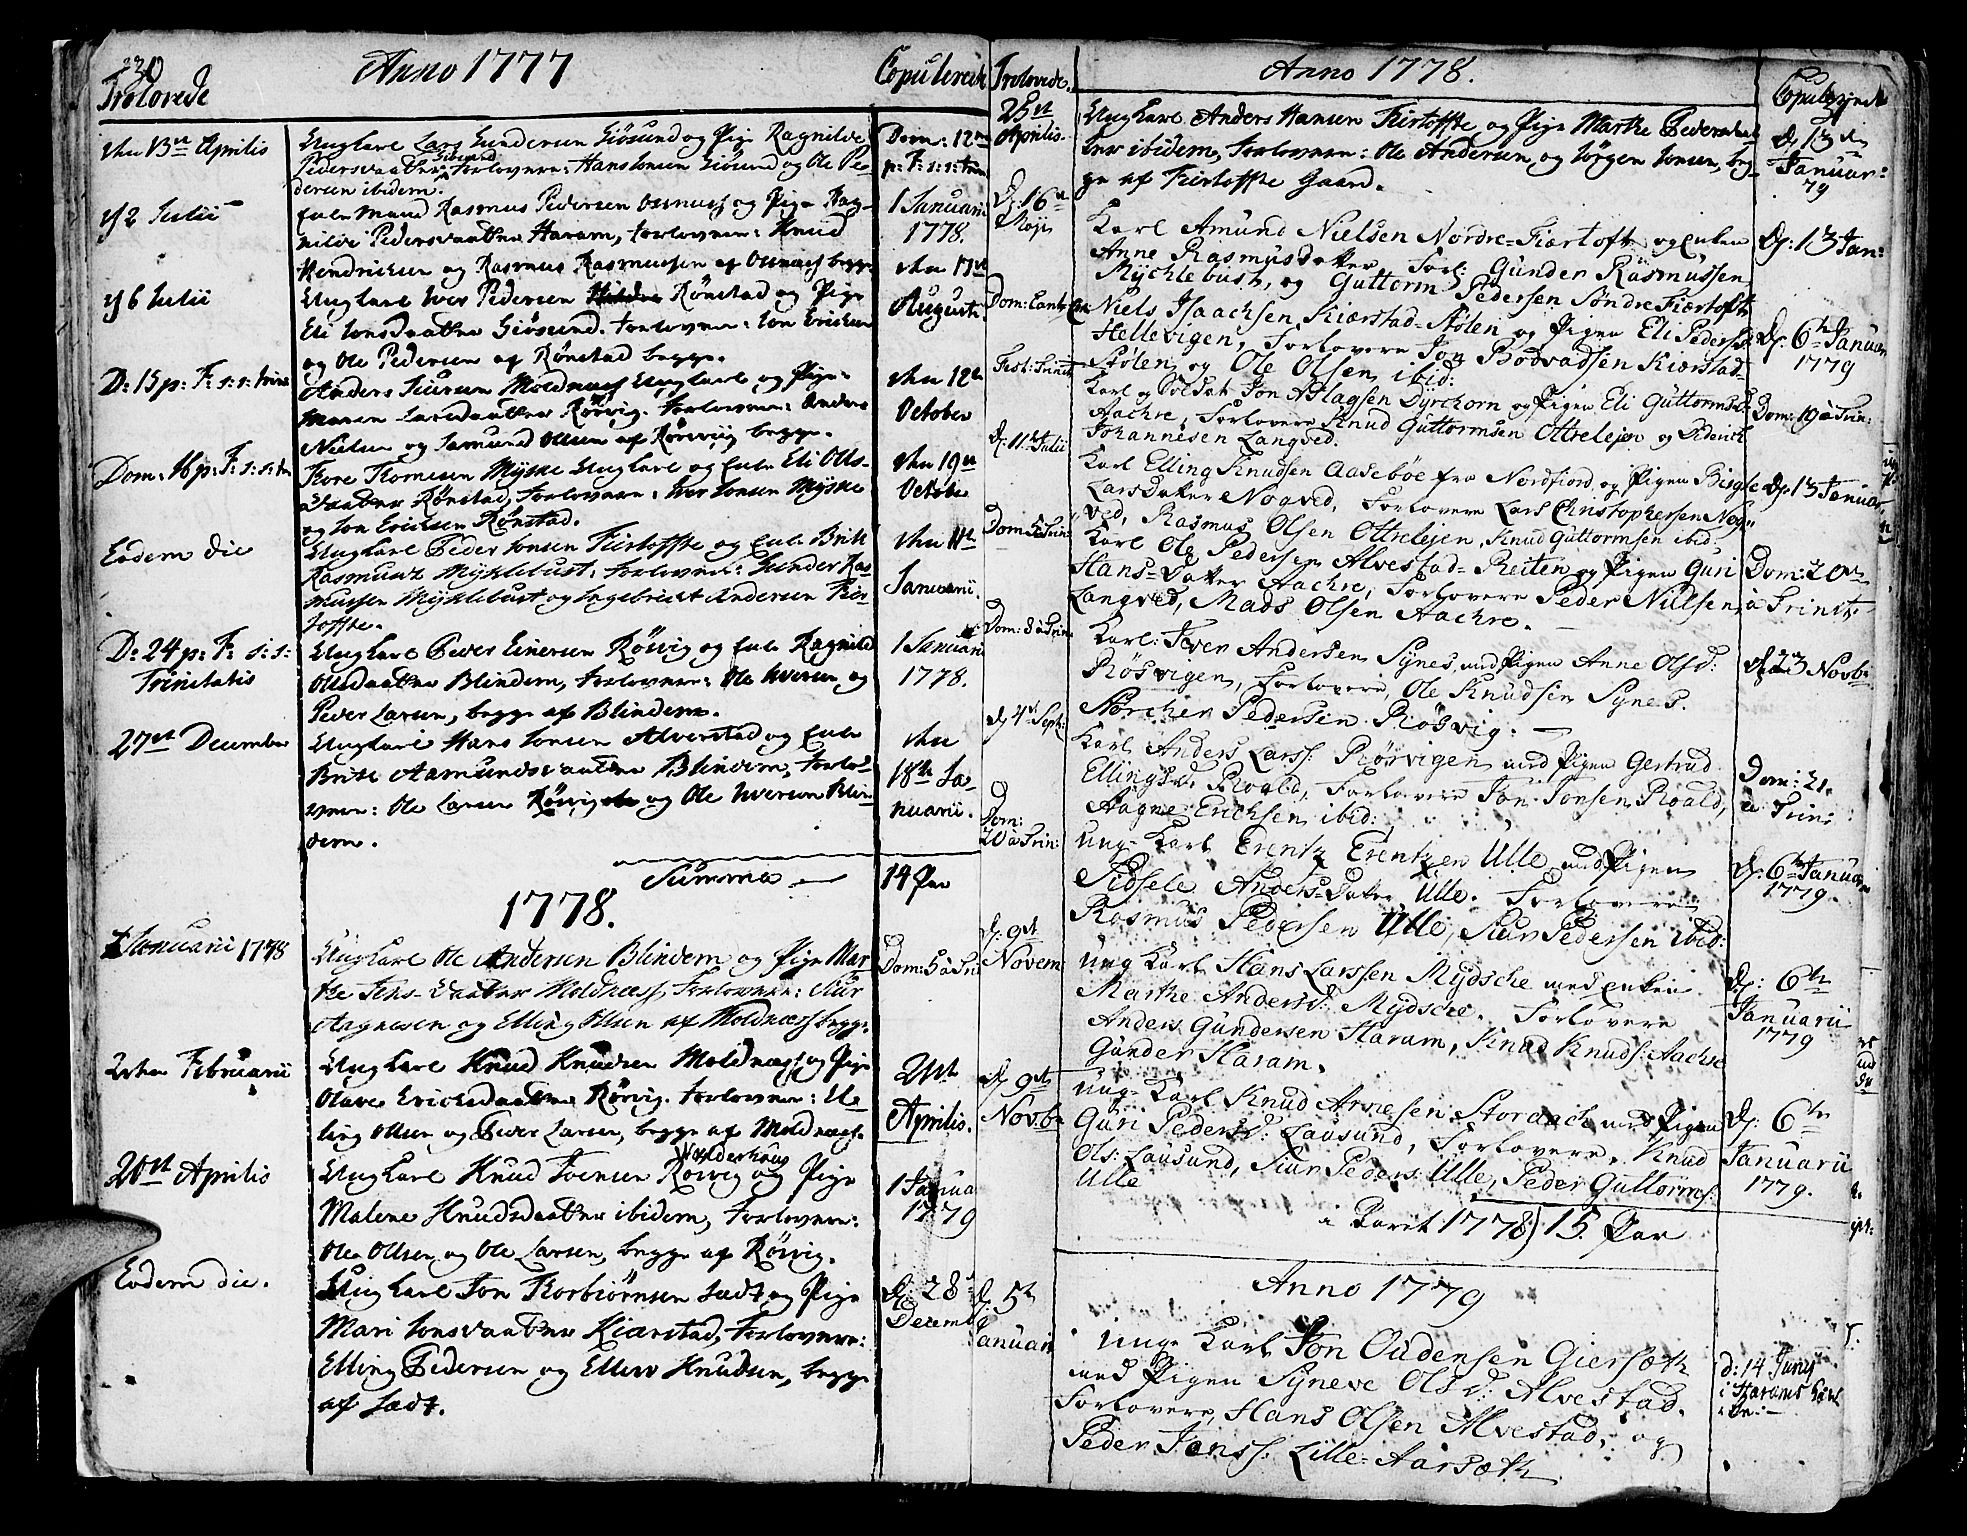 230
Trolovede
Anno 1777
Copulerede
den 13de Aprilis
Ung Karl Lars Gundersen Giösund og Pige Ragnilde
Pedersdaatter Giösund, Forlovere: Hans Jonsen Giösund og Ole Pe-
dersen ibidem.
Dom: 12te
p: F: s: s: Trin
2 Julii
Enke Mand Rasmus Pedersen og Pige Rag-
nilde Pedersdaatter Haram, Forlovere: Knud
Hendricksen og Rasmus Rasmussen af begge.
1 Januarii
1778.
6 Julii
Ung Karl Iver Pedersen Rönstad og Pige
Eli Jonsdaatter Giösund. Forlovere: Jon Ericksen
og Ole Pedersen af Rönstad begge.
den 17de
Augusti
D: 15 p: F: s: s: Trin:
Anders Moldnæs Ung Karl og Pige
Maren Larsdaatter Rösvig. Forlovere: Anders
Nielsen og Samund Olsen af Rösvig begge.
den 12te
October
Dom. 16 p: F: s: s: tr
Tore Tomesen Myske Ung Karl og Enke Eli Ols-
daatter Rönstad, Forlovere: Iver Jonsen Myske
og Jon Ericksen Rönstad.
den 19de
October
Eodem die
Ung Karl Peder Jonsen Fiertofte og Enke Britt
Rasmusd: Myklebust: Forlovere: Gunder Ras-
mussen Myklebust og Ingebrict Andersen Fier-
tofte.
den 11te
Januarii.
D: 24 p: F: s: s:
Trinitatis
Ung Karl Peder Einersen Rösvig og Enke Ragnild
Olsdaatter Blindem, Forlovere: Ole Iversen og
Peder Larsen, begge af Blindem.
1 Januarii
1778.
27de December
Ung Karl Hans Jonsen Alverstad og Enke
Britt Aamundsdaatter Blindem, Forlo-
vere: Ole Larsen Rösvig og Ole Iversen Blin-
dem.
den
18de Ja-
nuarii.
Summa
14 Par
1778.
1 Januarii 1778
Ung Karl Ole Andersen Blindem og Pige Mar-
the Jens-daatter Moldnæs, Forlovere: Siur
Aagnesen og Elling Olsen af Moldnæs begge.
Dom: 5 à Tri
2den Februarii
Ung Karl Knud Knudsen Moldnæs og Pige
Olave Ericksdaatter Rösvig. Forlovere: El-
ling Olsen og Peder Larsen, begge af Moldnæs.
21de
Aprilis.
20de Aprilis
Ung Karl Knud Toensen Rösvig Valderhaug og Pige
Malene Knudsdaatter ibidem, Forlovere:
Ole Olsen og Ole Larsen, begge af Rösvig.
1 Janua
1779
Eodem die.
Ung Karl Jon Torbiörnsen Sædt og Pige
Mari Jonsdaatter Kiærstad, Forlovere:
Elling Pedersen og Knudsen, begge
af Sædt.
D: 28
Decemb
Trolovede
Anno 1778.
Copulerede
25de
Aprilis
Ung Karl Anders Hansen Fiertofte og Pige Marthe Pedersdaat-
ter ibidem, Forlovere: Ole Andersen, og Jörgen Jonsen, beg-
ge af Fiertofte Gaard.
d: 13de
Januar:
79
D: 16de
Maji
Karl Amund Nielsen Nordre-Fiertofte og Enken
Anne Rasmusdatter Forl: Gunder Rasmussen
Mychlebust, og Guttorm Pedersen Söndre Fiertofte
D: 13 Jan:
Dom: Cantate
Niels Isaachsen Kiærstad-Stölen og Pigen Eli Pedersd:
Hellevigen, Forlovere Jon Bodvadsen Kiærstad-
Stölen og Ole Olsen ibid:
D: 6te Januar
1779
Fest: Trinit:
Karl og Soldat Jon Aslagsen Dyrchorn og Pigen Eli Guttormsd:
Aachre, Forlovere Knud Guttormsen Ottreleien og Didrick
Johannesen Langved.
Dom: 19 à Trin:
d: 11te Julii
Karl Elling Knudsen Aaseböe fra Nordfiord og Pigen Birgte
LarsDatter Nogved, Forlovere Lars Christophersen Nog-
ved, Rasmus Olsen Ottreleien, Knud Guttormsen ibid:
D: 13 Januar
Dom: 5 à Trin:
Karl Ole Pedersen Alvestad-Reiten og Pigen Guri
Hans-Datter Aachre, Forlovere Peder Nielsen
Langved, Mads Olsen Aachre.
Dom: 20de
à Trinit:
Dom: 8 à Trin:
Karl: Iver Andersen Synes, med Pigen Anne Olsd:
Rösvigen, Forlovere, Ole Knudsen Synes.
Pedersen Rösvig:
d: 23 Novb:
d: 4de Sept:
Karl Anders Larss: Rösvigen med Pigen Gertrud
Ellingsd: Roald, Forlovere Jon Jonsen Roald,
Aagne Erichsen ibid:
Dom: 21.
à Trin:
Dom:
20 à Trin:
ung Karl Erentz Erentzen Ulle med Pigen
Sidsele AndersDatter Ulle. Forlovere
Rasmus Pedersen Ulle, Siur Pedersen ibid:
D: 6te Januar
1779.
d: 9de
Novem
ung Karl Hans Larssen Mydsche med Enken
Marthe Andersd: Mydsche. Forlovere
Anders Gundersen Haram, Knud Knuds: Aachre
Gunder Haram.
D: 6te
Januarii
1779
d: 9de
Novb:
ung Karl Knud Arnesen Storaach med Pigen
Guri Pedersd: Lausund, Forlovere, Knud
Ols: Lausund, Siur Peders: Ulle, Peder Guttorms:
Ulle
D: 6te
Januarii
1779.
i Aaret 1778) 15 Par
Anno 1779
d: 5te
Januari
unge Karl Jon Oudensen Giersæth
med Pigen Syneve Olsd: Alvestad.
Forlovere, Hans Olsen Alvestad, og
Peder Jenss: Lille-Aarsæth
d: 14 Junij
i Harams Kirk